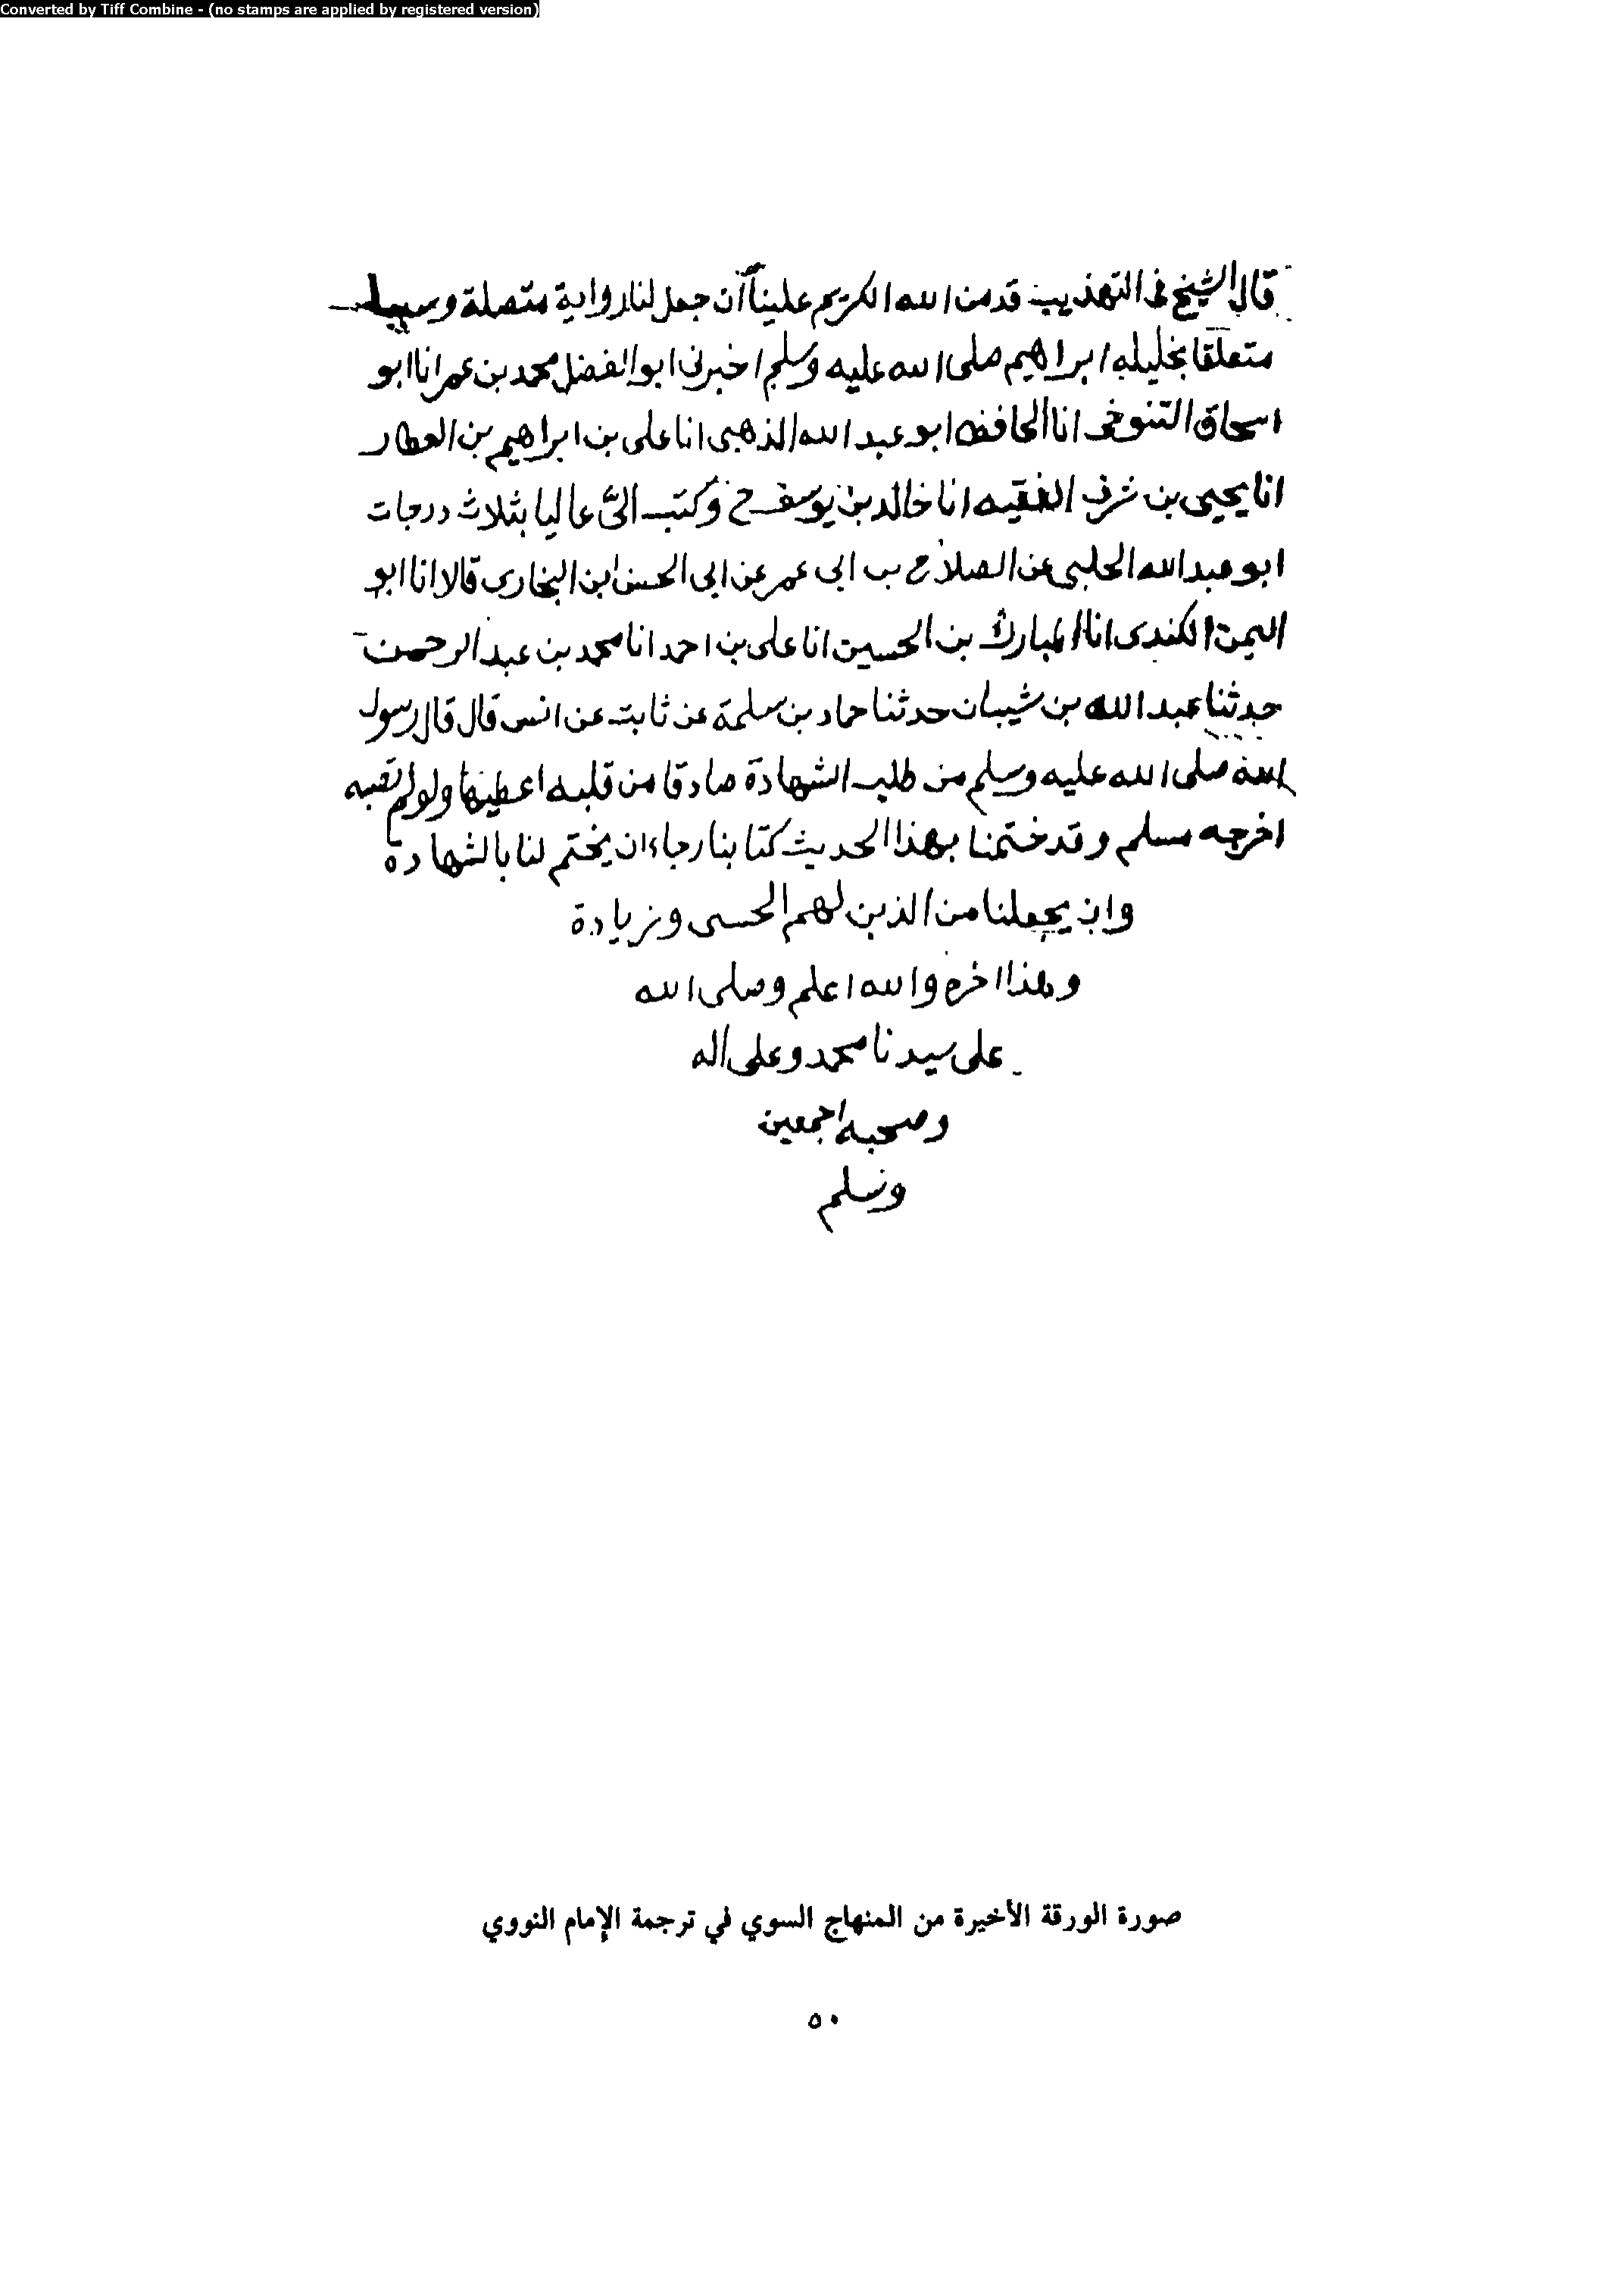 Converted by Tiff Combine - (no stamps are applied by registered version)
قال الشيخ فى التهذيب قد من الله الكريم علينا أن جعل لنا رواية متصلة وسببا
متعلقا بخليله ابراهيم صلى الله عليه وسلم اخبرنى ابو الفضل محمد بن عمر انا ابو
اسحاق التنوخى انا الحافظ ابو عبد الله الذهبى انا على بن ابراهيم بن العطار
انا يحيى بن شرف الفقيه انا خالد بن يوسف ح وكتب الىّ عاليا بثلاث درجات
ابو عبد الله الحلبى عن الصلاح ب ابي عمر عن ابى الحسن ابن البخارى قالا انا ابو
اليمن الكندى انا المبارك بن الحسين انا على بن احمد انا محمد بن عبد الرحمن
حدثنا عبد الله بن شيبان حدثنا حماد بن سلمة عن ثابت عن انس قال قال رسول
الله صلى الله عليه وسلم من طلب الشهادة صادقا من قلبه اعطيها ولو لم تصبه
اخرجه مسلم وقد ختمنا بهذا الحديث كتابنا رجاء ان يختم لنا بالشهادة
وان يجعلنا من الذين لهم الحسنى وزيادة
وهذا اخره والله اعلم وصلى الله
على سيدنا محمد وعلى اله
وصحبه اجمعين
وسلم
صورة الورقة الأخيرة من المنهاج السوي في ترجمة الإمام النووي
٥٠